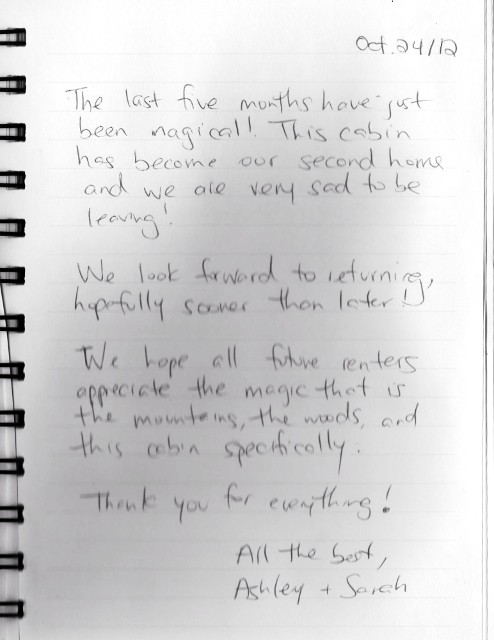 Oct. 24/12
The last five months have just
been magical!! This cabin
has become our second home
and we are very sad to be
leaving!
We look forward to returning,
hopefully sooner than later!!
We hope all future renters
appreciate the magic that is
the mountains, the woods, and
this cabin specifically.
Thank you for everything!
All the best,
Ashley + Sarah